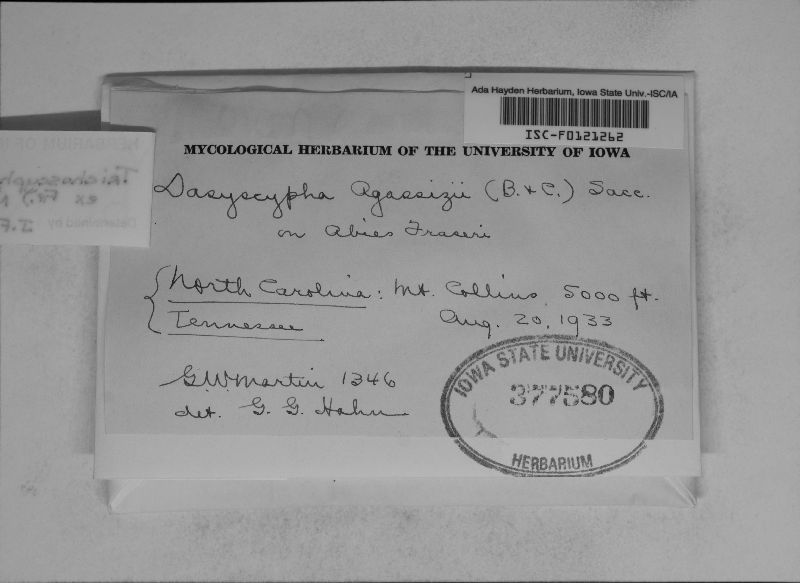 Ada Hayden Herbarium, Iowa State Univ.-ISC/IA
ISC-F0121262
MYCOLOGICAL HERBARIUM OF THE UNIVERSITY OF IOWA
Dasyscypha Agassizii (B. & C.) Sacc.
on Abies Fraseri
North Carolina: Mt. Collins, 5000 ft.
Tennessee Aug. 20, 1933
G.W. Martin 1346
det. G. G. Hahn
IOWA STATE UNIVERSITY
377580
HERBARIUM
HERBARIUM OF
ex Fr.)
Determined by J.F.